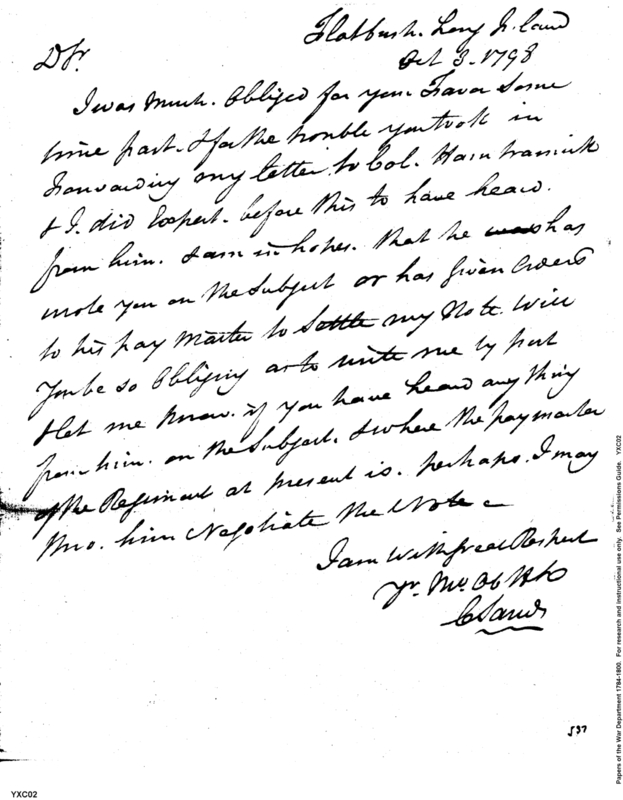 Flatbush. Long Island
Oct 3. 1798
D Sr.
I was Much. Obliged for your Favor Some
time past. & for the trouble you took in
Forwarding my letter to Col. Hamtramck
& I. did Expect. before this to have heard.
from him. I am in hopes. that he was has
wrote you on the Subject or has given Orders
to his pay Master to Settle my Note. Will
You be so Obliging as to write me by post
& let me know. if you have heard any thing
from him. on the Subject. & where the paymaster
of the Regiment at present is. perhaps. I may
thro. him Negotiate the Note –
I am With great Respect
Yr. Mo. Ob H
C Sands
537
YXC02
Papers of the War Department 1784-1800. For research and instructional use only. See Permissions Guide. YXC02